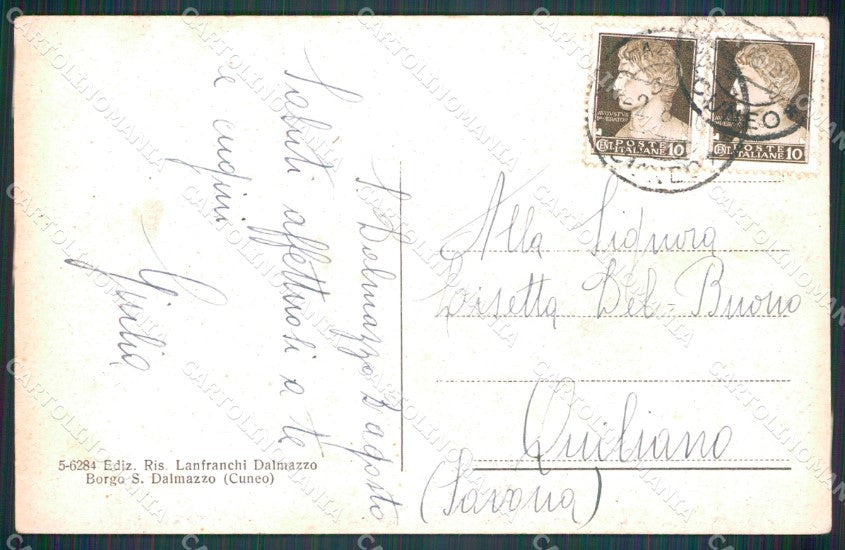 S. Dalmazzo 2 agosto
Saluti affettuosi a te
e cugini
Giulia
Alla Signora
Rosetta Del-Buono
Quiliano
(Savona)
AUGVSTVS
IMPERATOR
POSTE
ITALIANE
CENT. 10
AUGVSTVS
IMPERATOR
POSTE
ITALIANE
CENT. 10
CUNEO
5-6284 Ediz. Ris. Lanfranchi Dalmazzo
Borgo S. Dalmazzo (Cuneo)
CARTOLINOMANIA